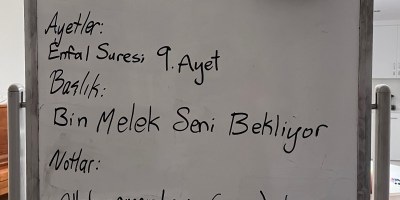 Ayetler:
Enfal Suresi 9. Ayet
Başlık:
Bin Melek Seni Bekliyor
Notlar: